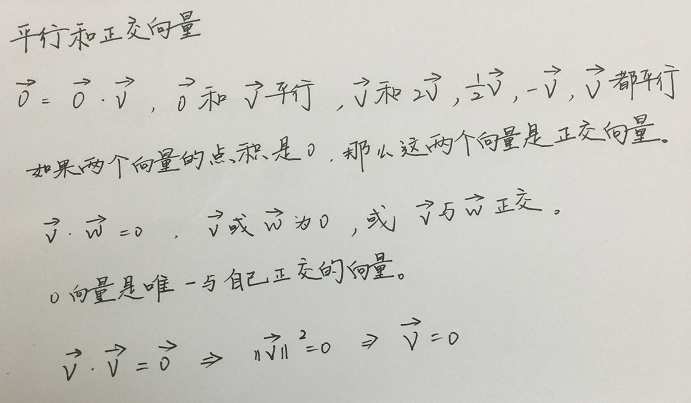 平行和正交向量
$\vec{0} = \vec{0} \cdot \vec{v}$, $\vec{0}$ 和 $\vec{v}$ 平行, $\vec{v}$ 和 $2\vec{v}$, $\frac{1}{2}\vec{v}$, $-\vec{v}$, $\vec{v}$ 都平行
如果两个向量的点积是0, 那么这两个向量是正交向量。
$\vec{v} \cdot \vec{w} = 0$, $\vec{v}$ 或 $\vec{w}$ 为0, 或 $\vec{v}$ 与 $\vec{w}$ 正交。
0向量是唯一与自己正交的向量。
$\vec{v} \cdot \vec{v} = \vec{0} \Rightarrow \|\vec{v}\|^2 = 0 \Rightarrow \vec{v} = 0$